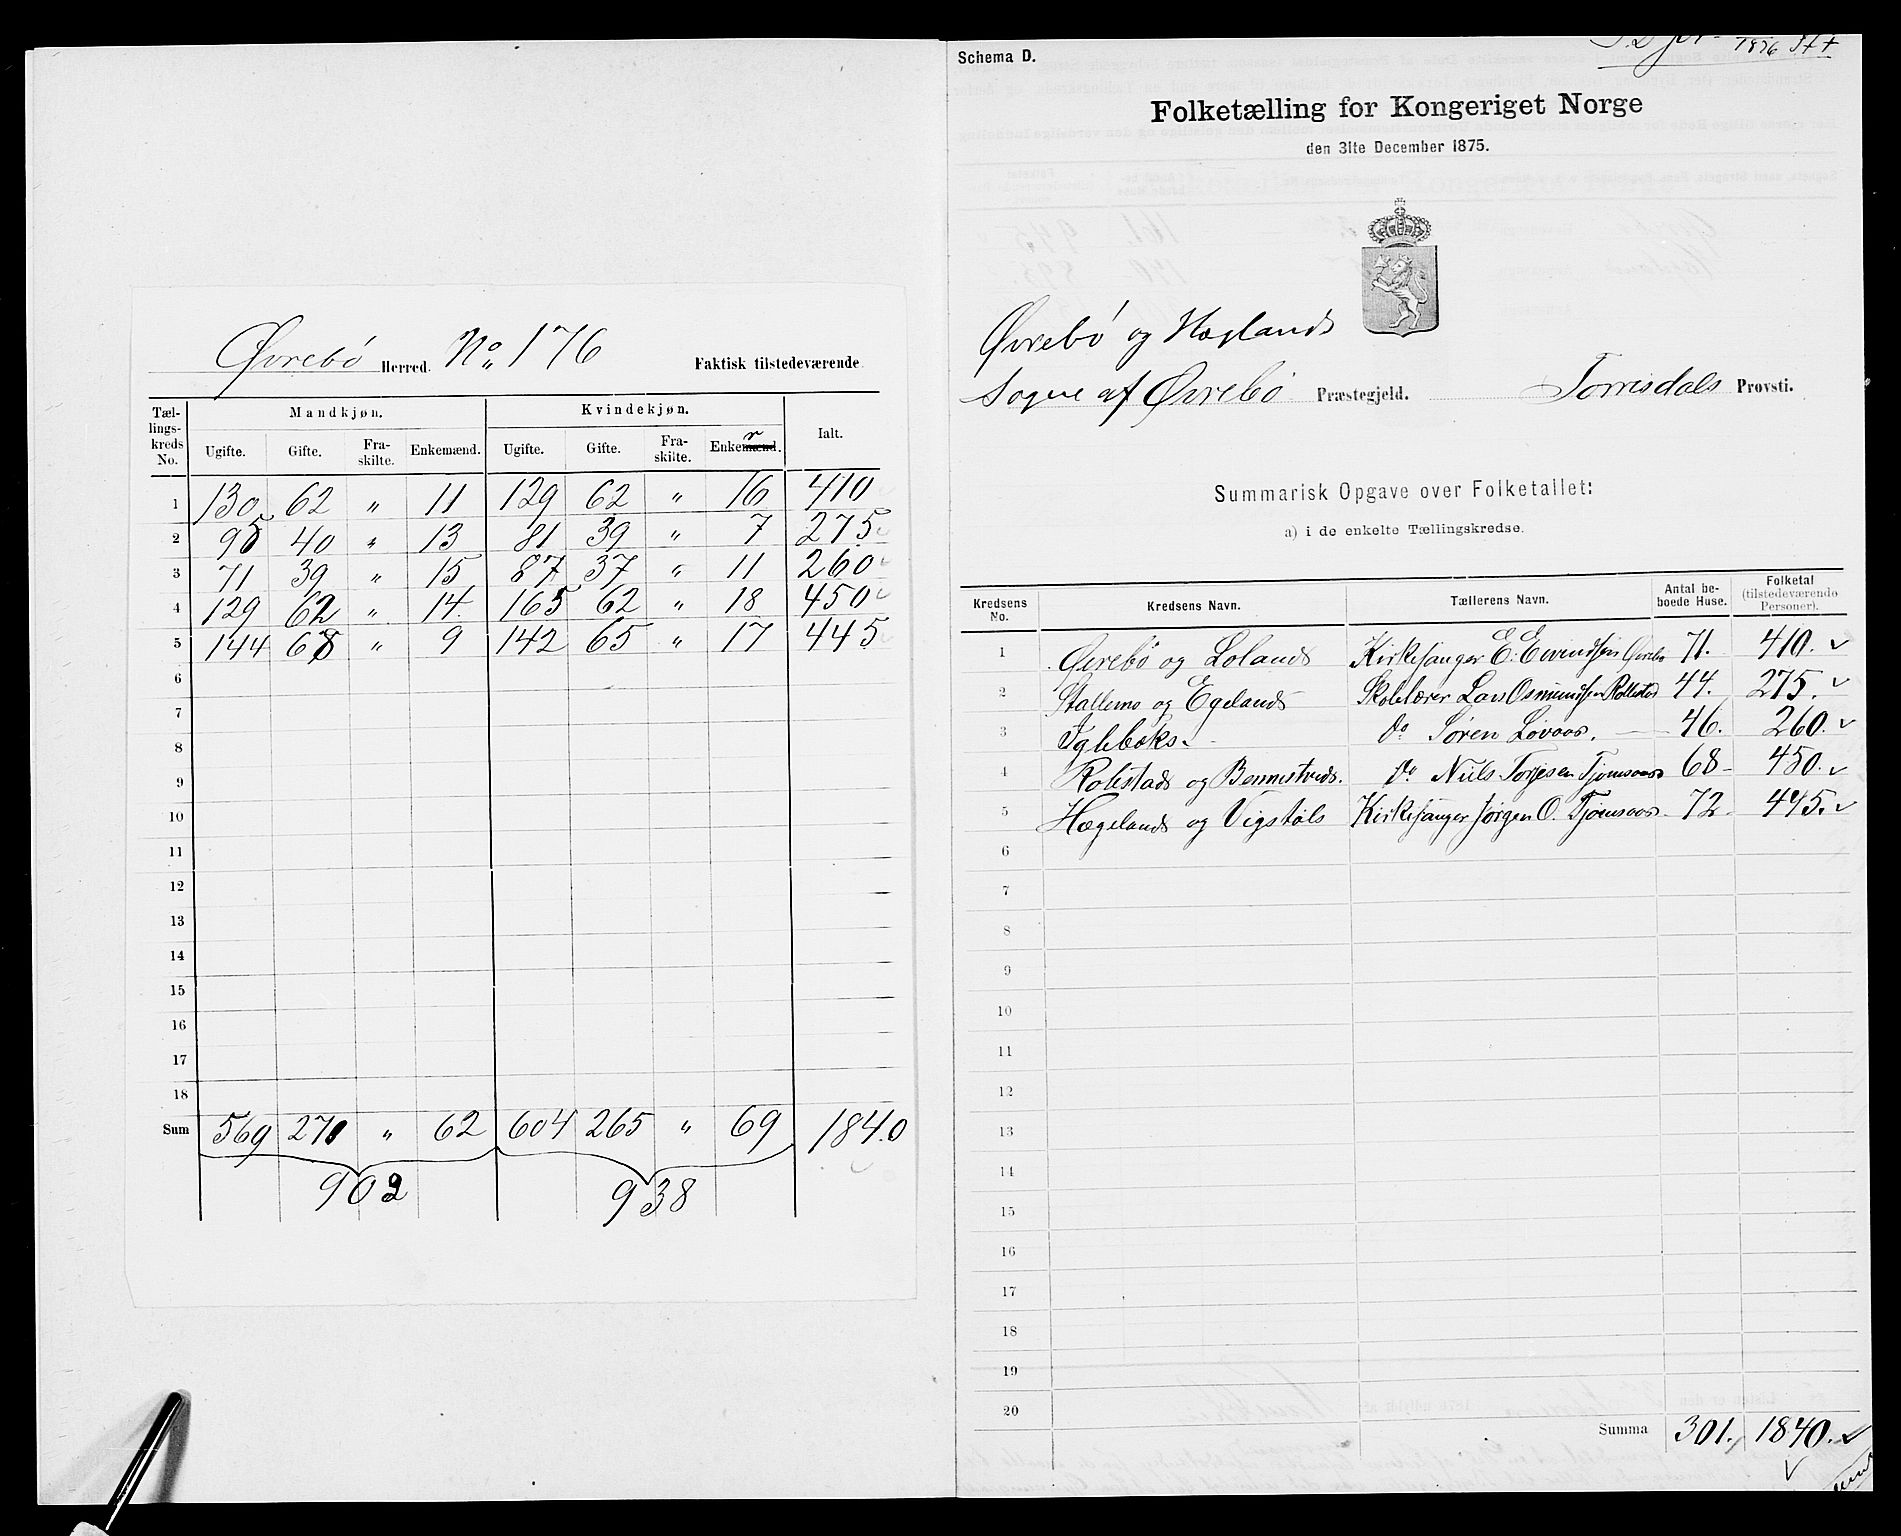 Øvrebö Herred. No. 176 Faktisk tilstedeværende
Tællingskreds No. Mandkjøn. Kvindekjøn. Ialt.
Ugifte. Gifte. Fraskilte. Enkemænd. Ugifte. Gifte. Fraskilte. Enker
1 130 62 " 11 129 62 " 16 410
2 95 40 " 13 81 39 " 7 275
3 71 39 " 15 87 37 " 11 260
4 129 62 " 14 165 62 " 18 450
5 144 68 " 9 142 65 " 17 445
6
7
8
9
10
11
12
13
14
15
16
17
18
Sum 569 270 " 62 604 265 " 69 1840
902 938
Schema D.
1876
Folketælling for Kongeriget Norge
den 31te December 1875.
Øvrebö og Hægelands
Sogne af Øvrebö Præstegjeld. Torrisdals Provsti.
Summarisk Opgave over Folketallet:
a) i de enkelte Tællingskredse.
Kredsens No. Kredsens Navn. Tællerens Navn. Antal beboede Huse. Folketal (tilstedeværende Personer).
1 Øvrebö og Lolands Kirkesanger E. Eivindsen Øvrebö 71. 410.
2 Stallemo og Egelands Skolelærer Lars Osmundsen Rolstad 44. 275.
3 Igleboks. do Sören Lovaas. 46. 260.
4 Rolestads og Bennestveds. do Niels Torjesen Tjomsaas 68 450.
5 Hægelands og Vigstöls Kirkesanger Jörgen O. Tjomsaas 72 445.
6
7
8
9
10
11
12
13
14
15
16
17
18
19
20
Summa 301. 1840.